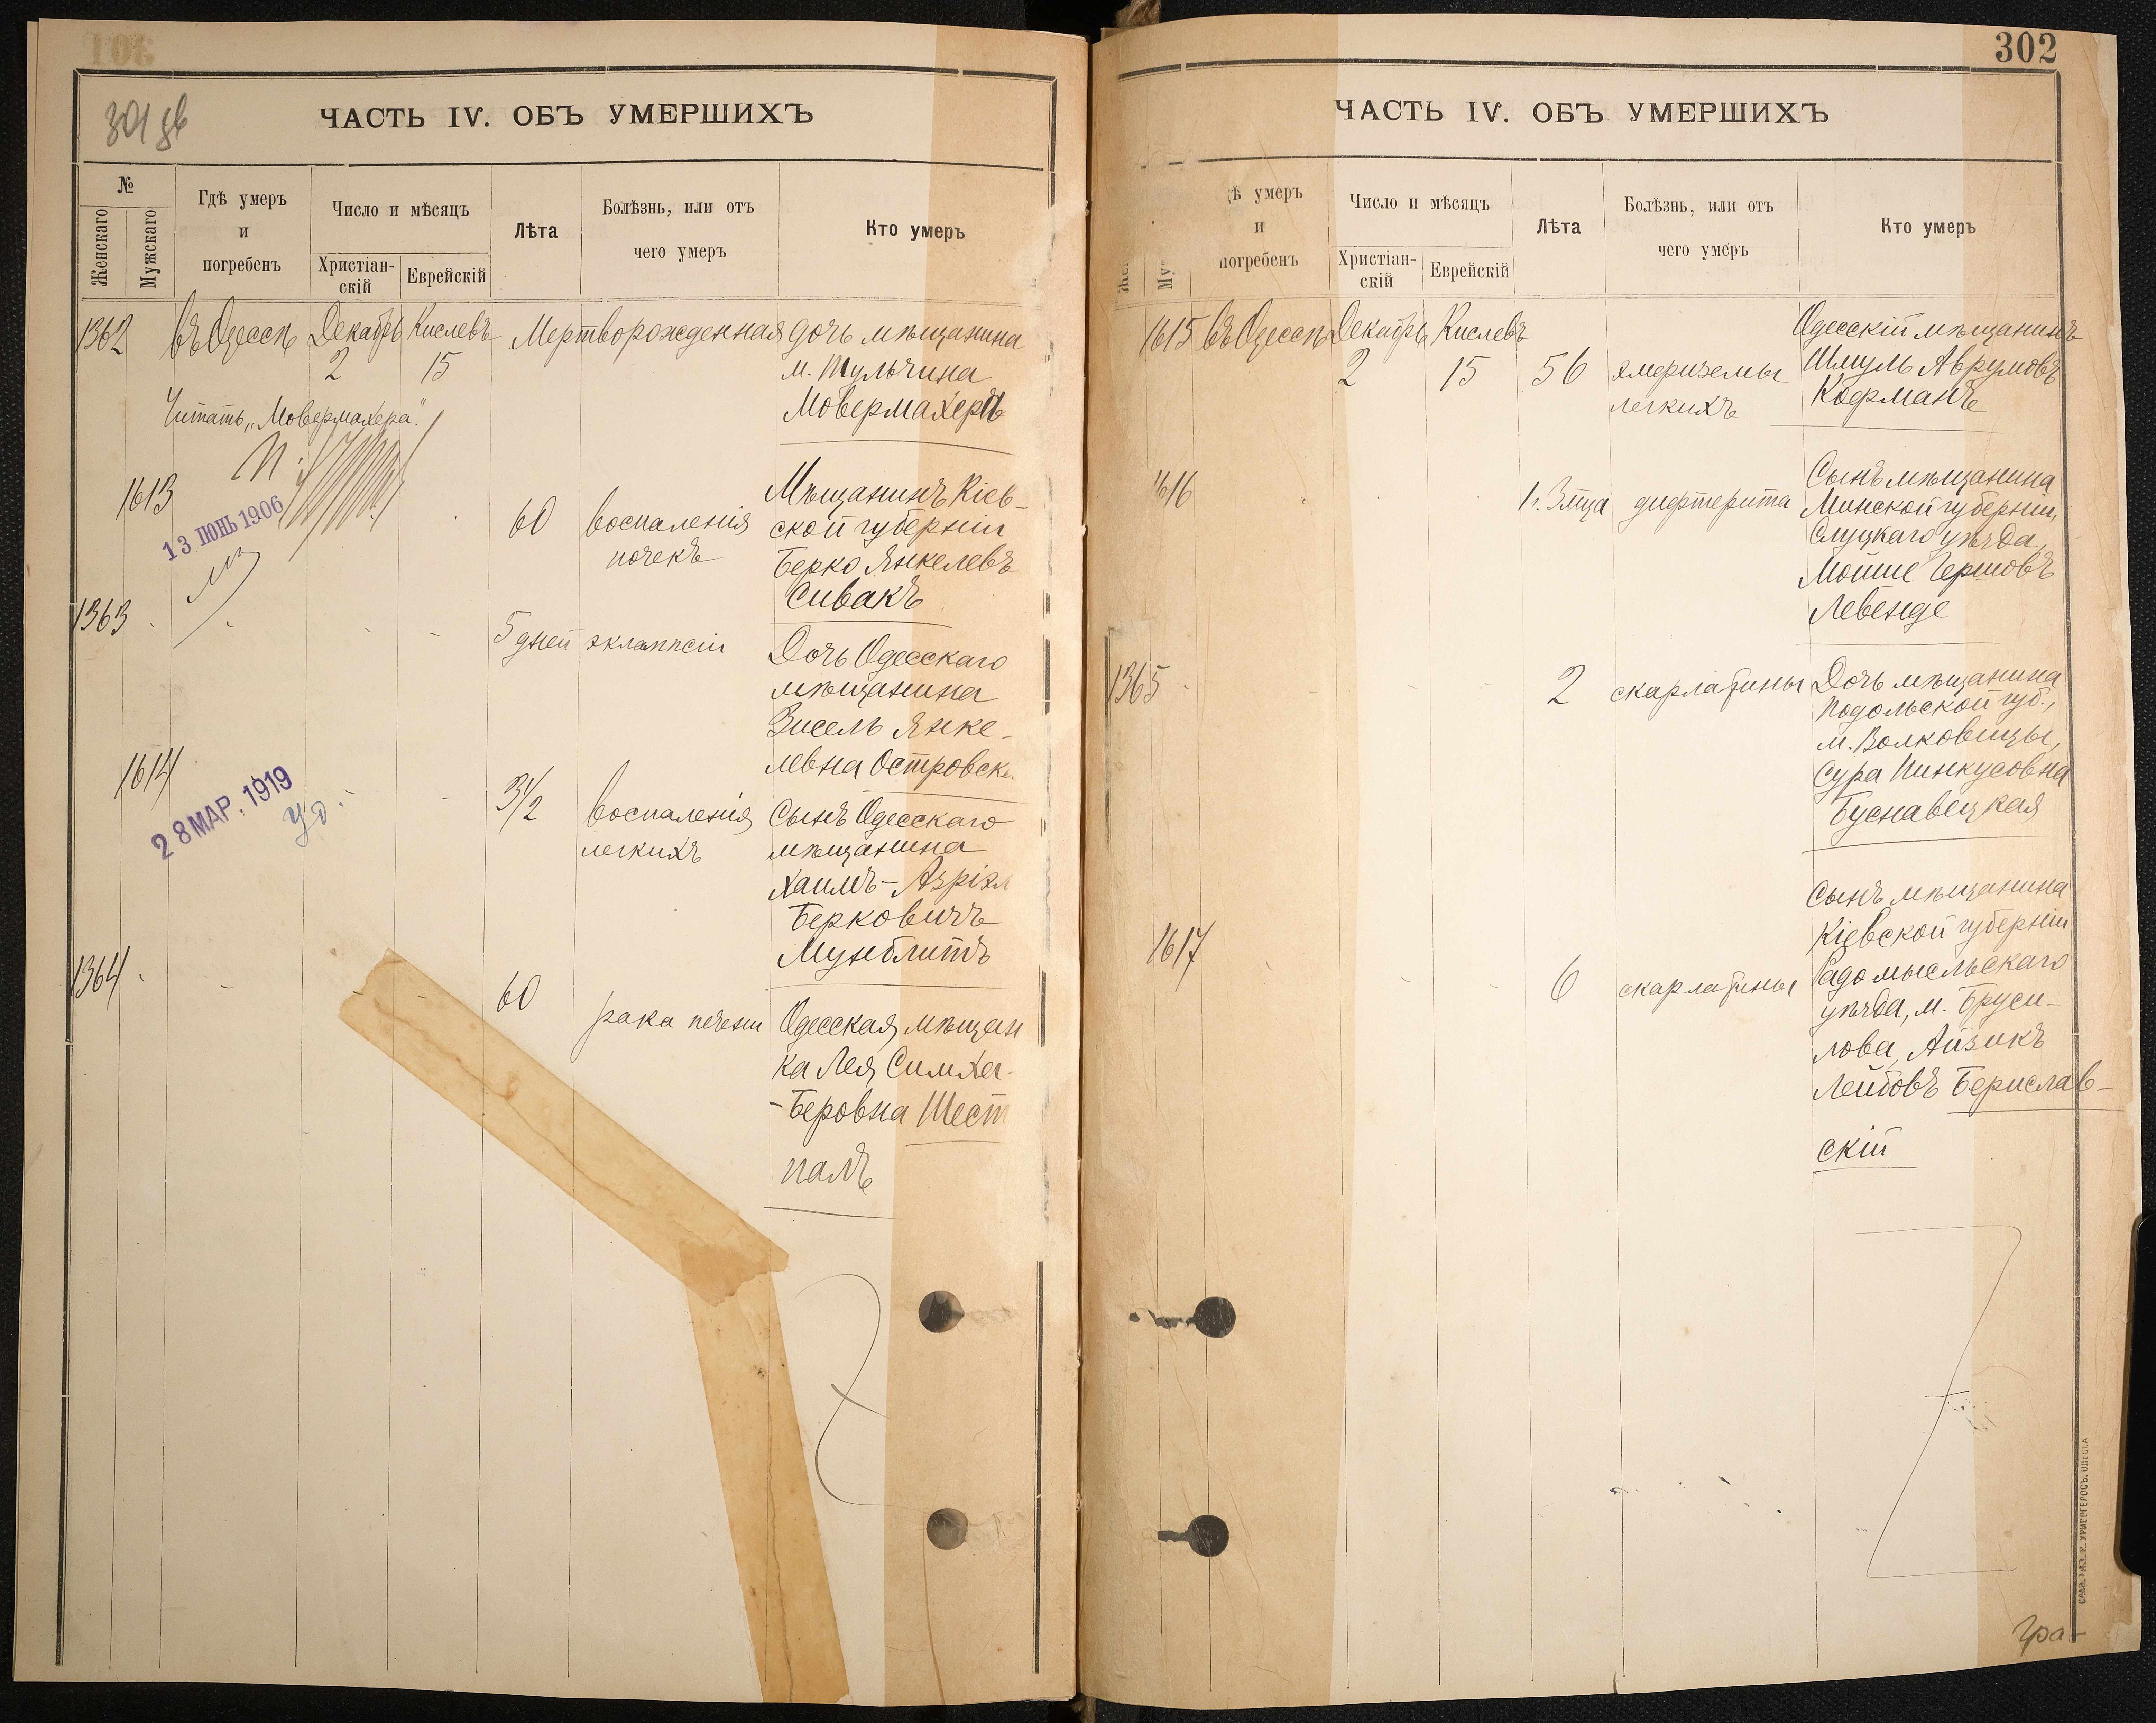 301 об
ЧАСТЬ IV. ОБЪ УМЕРШИХЪ
№
Женскаго
Мужскаго
Гдѣ умеръ
и
погребенъ
Число и мѣсяцъ
Христіан-
скій
Еврейскій
Лѣта
Болѣзнь, или отъ
чего умеръ
Кто умеръ
1362 въ Одессѣ Декабрь Кислевъ Мертворожденная дочь мѣщанина
2 15 м. Тульчина
Мовермахера
Читать „Мовермахера"
1613
13 ІЮНЬ 1906
60 воспаленія
почекъ
Мѣщанинъ Кіев-
ской губерніи
Берко Янкелевъ
Сивакъ
1363
5 дней эклампсіи
Дочь Одесскаго
мѣщанина
Зисель Янке-
левна Островска
1614
28 МАР. 1919
3 1/2 воспаленія
легкихъ
Сынъ Одесскаго
мѣщанина
Хаимъ-Азріэл
Берковичъ
Мунблитъ
1364
60 рака печени
Одесская мѣщан
ка Лея Симха-
-Беровна Шест
палъ
302
ЧАСТЬ IV. ОБЪ УМЕРШИХЪ
Жен
Му
дѣ умеръ
и
погребенъ
Число и мѣсяцъ
Христіан-
скій
Еврейскій
Лѣта
Болѣзнь, или отъ
чего умеръ
Кто умеръ
1615 въ Одессѣ Декабрь Кислевъ
2 15 56 эмфиземы
легкихъ
Одесскій мѣщанинъ
Шмуль Аврумовъ
Кофманъ
1616
1 г. 3 мца дифтерита
Сынъ мѣщанина
Минской губерніи,
Слуцкаго уѣзда,
Мойше Гершовъ
Левенде
1365
2 скарлатины
Дочь мѣщанина
Подольской губ.,
м. Волковицы,
Сура Пинкусовна
Буснавецкая
1617
6 скарлатины
Сынъ мѣщанина
Кіевской губерніи
Радомысльскаго
уѣзда, м. Бруси-
лова, Айзикъ
Лейбовъ Берислав-
скій
Гра-